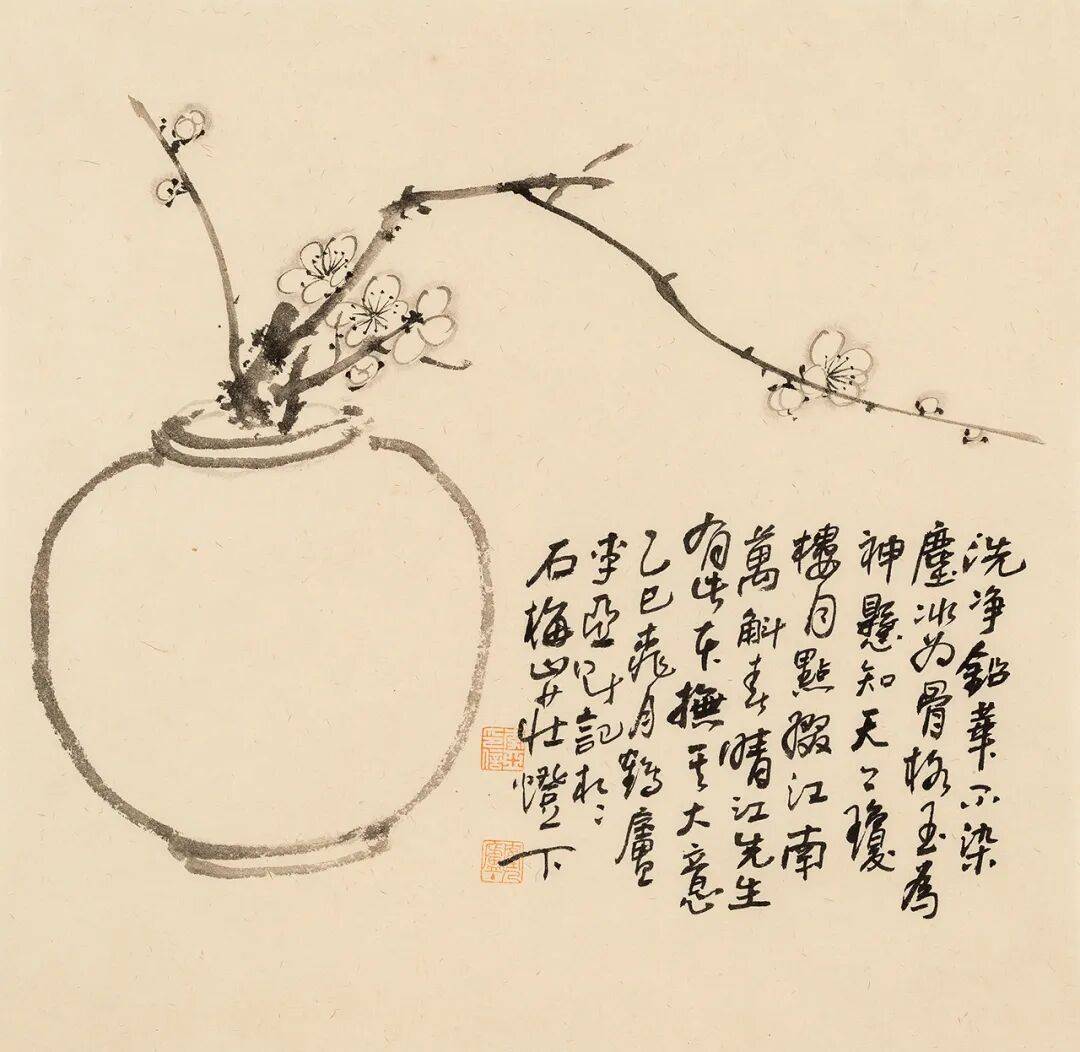 洗净鉛華不染
塵冰为骨格玉為
神懸知天上瓊
樓月點綴江南
萬斛春晴江先生
有此本撫其大意
乙巳月鶴廬
李亞記於
石梅山莊燈下